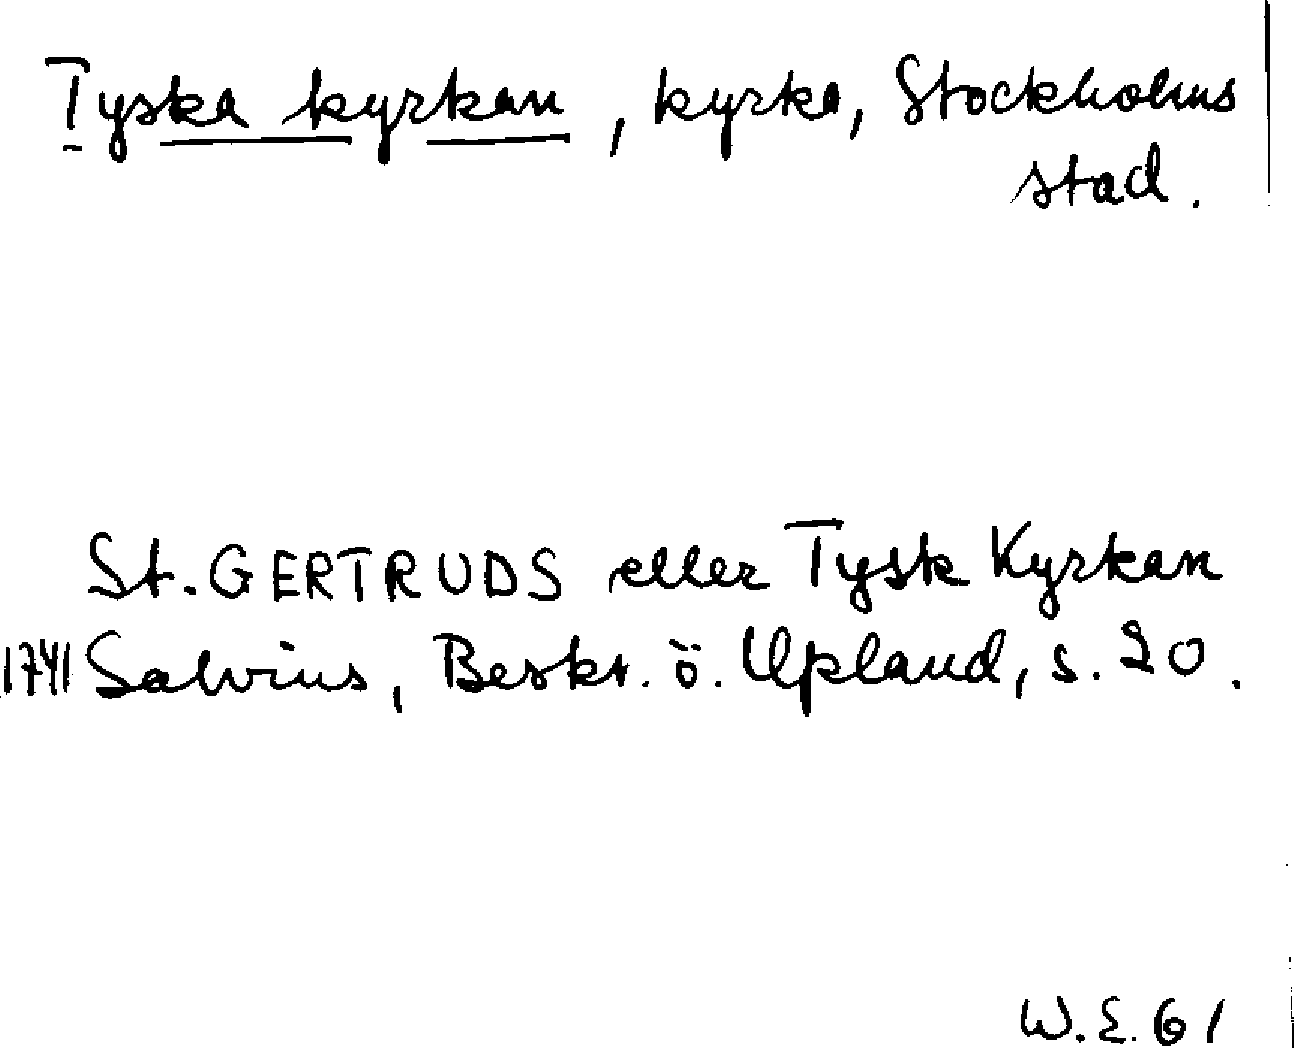 Tyska kyrkan, kyrka, Stockholms
stad.
St. GERTRUDS eller Tysk Kyrkan
1741 Salvius, Beskr. ö. Upland, s. 20.
W.E. 61